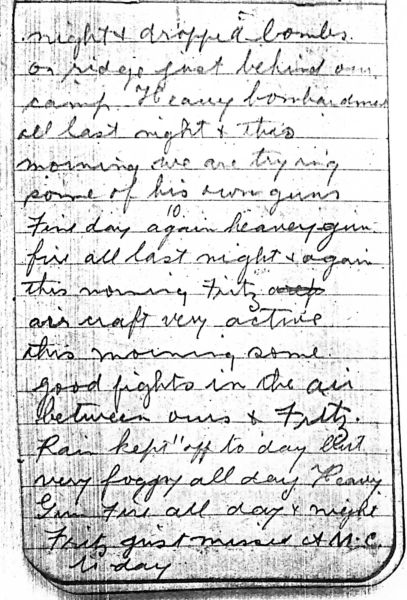 night & dropped bombs
on ridge just behind our
camp Heavy bombardmen
all last night & this
morning we are trying
some of his own guns
10
Fine day again heavey gun
fire all last night & again
this morning Fritz
air craft very active
this morning some
good fights in the air
between ours & Fritz.
11
Rain kept off to day but
very foggy all day Heavy
Gun Fire all day & night
Fritz just missed C.C.
to day